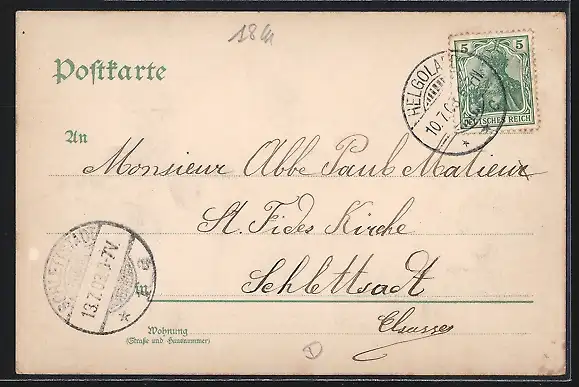 Postkarte
5 5
DEUTSCHES REICH
HELGOLA
10.7.0
An
Monsieur Abbe Paul Matieux
St. Fides Kirche
in Schlettsadt
Elsasse
13.7.03
Wohnung
(Straße und Hausnummer)